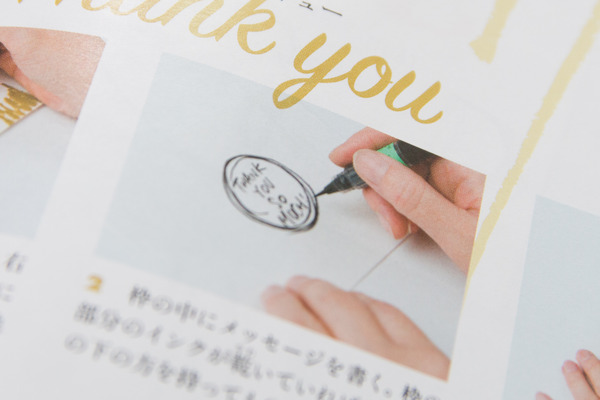 ュー
Thank you
THANK
YOU
SO
MUCH!
2 枠の中にメッセージを書く。枠の
部分のインクが乾いていれば
の下の方を持っても
右
に